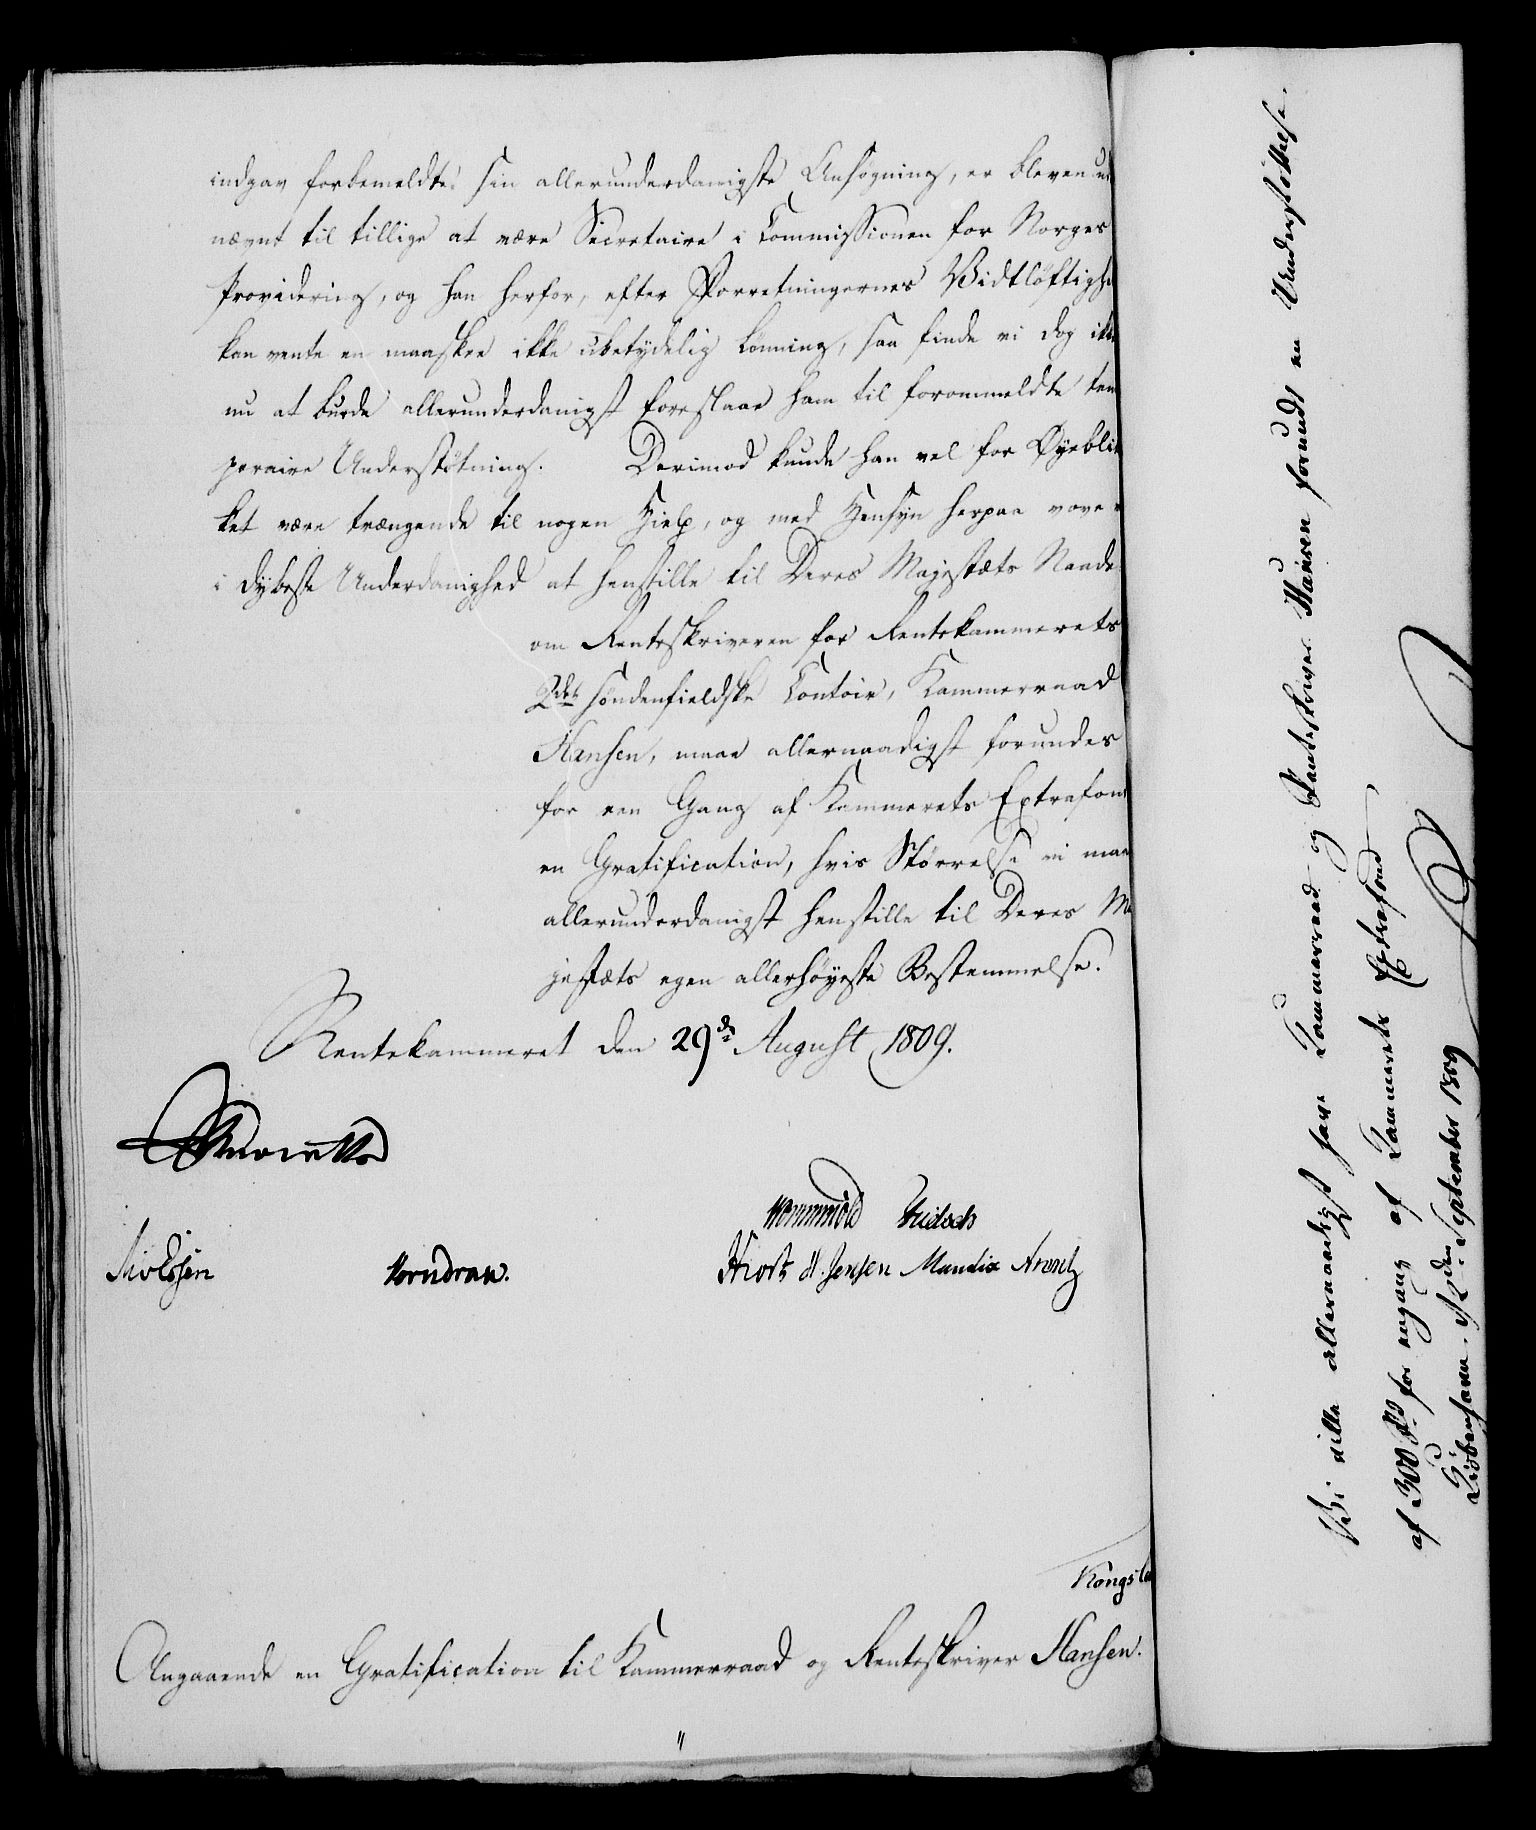 indgav forbemeldte sin allerunderdanigste Ansøgning, er bleven ud
nævnt til tillige at være Secretaire i Commissionen for Norges
Providering, og han herfor, efter Forretningernes Vidtløftighe
kan vente en maaskee ikke ubetydelig Lønning, saa finde vi dog ikke
nu at burde allerunderdanigst foreslaae ham til forommeldte tem
poraire Understøtning. Derimod kunde han vel for Øyeblik
ket være trængende til nogen Hielp, og med Hensyn herpaa vove v
i dybeste Underdanighed at henstille til Deres Majestæts Naade
om Renteskriveren for Rentekammerets
2det søndenfieldske Contoir, Kammerraad
Hansen, maae allernaadigst forundes
for een Gang af Kammerets Extrafond
en Gratification, hvis Størrelse vi maae
allerunderdanigst henstille til Deres Ma
jestæts egen allerhøyeste Bestemmelse.
Rentekammeret den 29de August 1809.
Wormskiold
Hiort H. Jensen Mandix Arentz
Korndran.
Kongsl
Angaaende en Gratification til Kammerraad og Renteskriver Hansen.
Vi ville allernaadigst have Kammerraad og Renteskriver Hansen forundt en Understøttelse
af 300 Rd for engang af Kammerets Extrafond
Kiøbenhavn d. September 1809